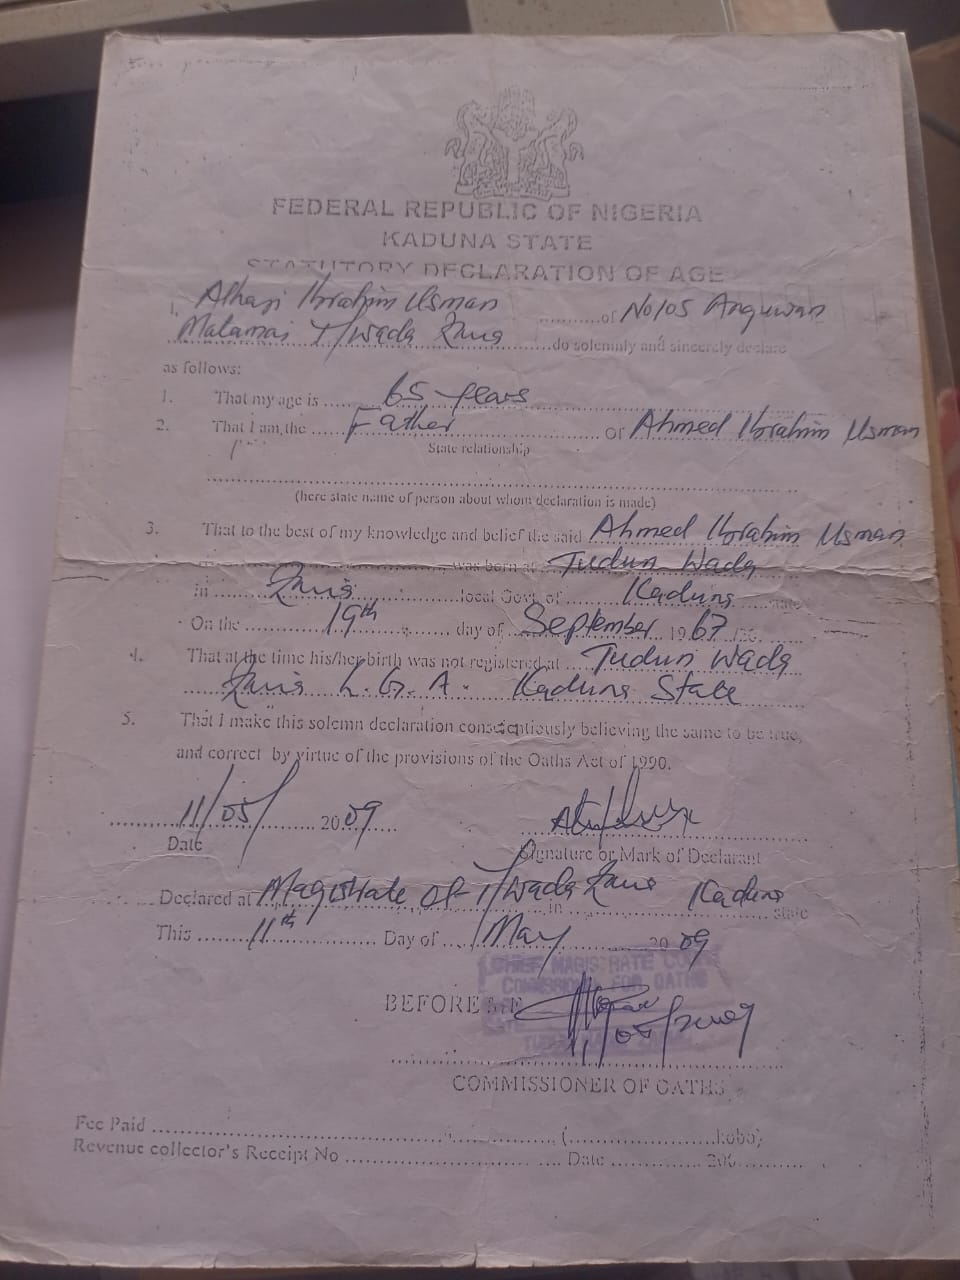 FEDERAL REPUBLIC OF NIGERIA
KADUNA STATE
STATUTORY DECLARATION OF AGE
I, Alhaji Ibrahim Usman of No 105 Anguwan
Malamai T/Wada Zaria do solemnly and sincerely declare
as follows:
1. That my age is 65 years
2. That I am the Father of Ahmed Ibrahim Usman
State relationship
(here state name of person about whom declaration is made)
3. That to the best of my knowledge and belief the said Ahmed Ibrahim Usman
was born at Tudun Wada
in Zaria local Govt. of Kaduna state
On the 19th day of September 1967
4. That at the time his/her birth was not registered at Tudun Wada
Zaria L.G.A. Kaduna State
5. That I make this solemn declaration conscientiously believing the same to be true,
and correct by virtue of the provisions of the Oaths Act of 1990.
11/05/ 2009
Date
Signature or Mark of Declarant
Declared at Magistrate of T/Wada Zaria in Kaduna state
This 11th Day of May 2009
CHIEF MAGISTRATE COURT
COMMISSIONER FOR OATHS
BEFORE ME
11/05/2009
COMMISSIONER OF OATHS
Fee Paid (kobo)
Revenue collector's Receipt No Date 200